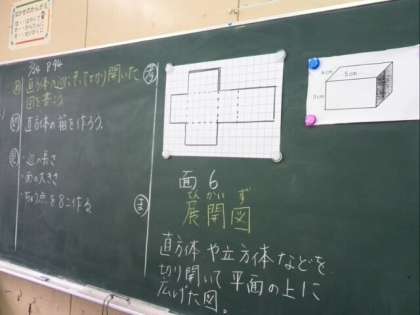 2/4 P94
め 直方体を辺にそって切り開いた
図をかこう
直方体の箱を作ろう。
・辺の長さ
・面の大きさ
・ちょう点を8こ作る
考
ま
面6
てんかいず
展開図
直方体や立方体などを
切り開いて平面の上に
広げた図。
4cm
5cm
3cm